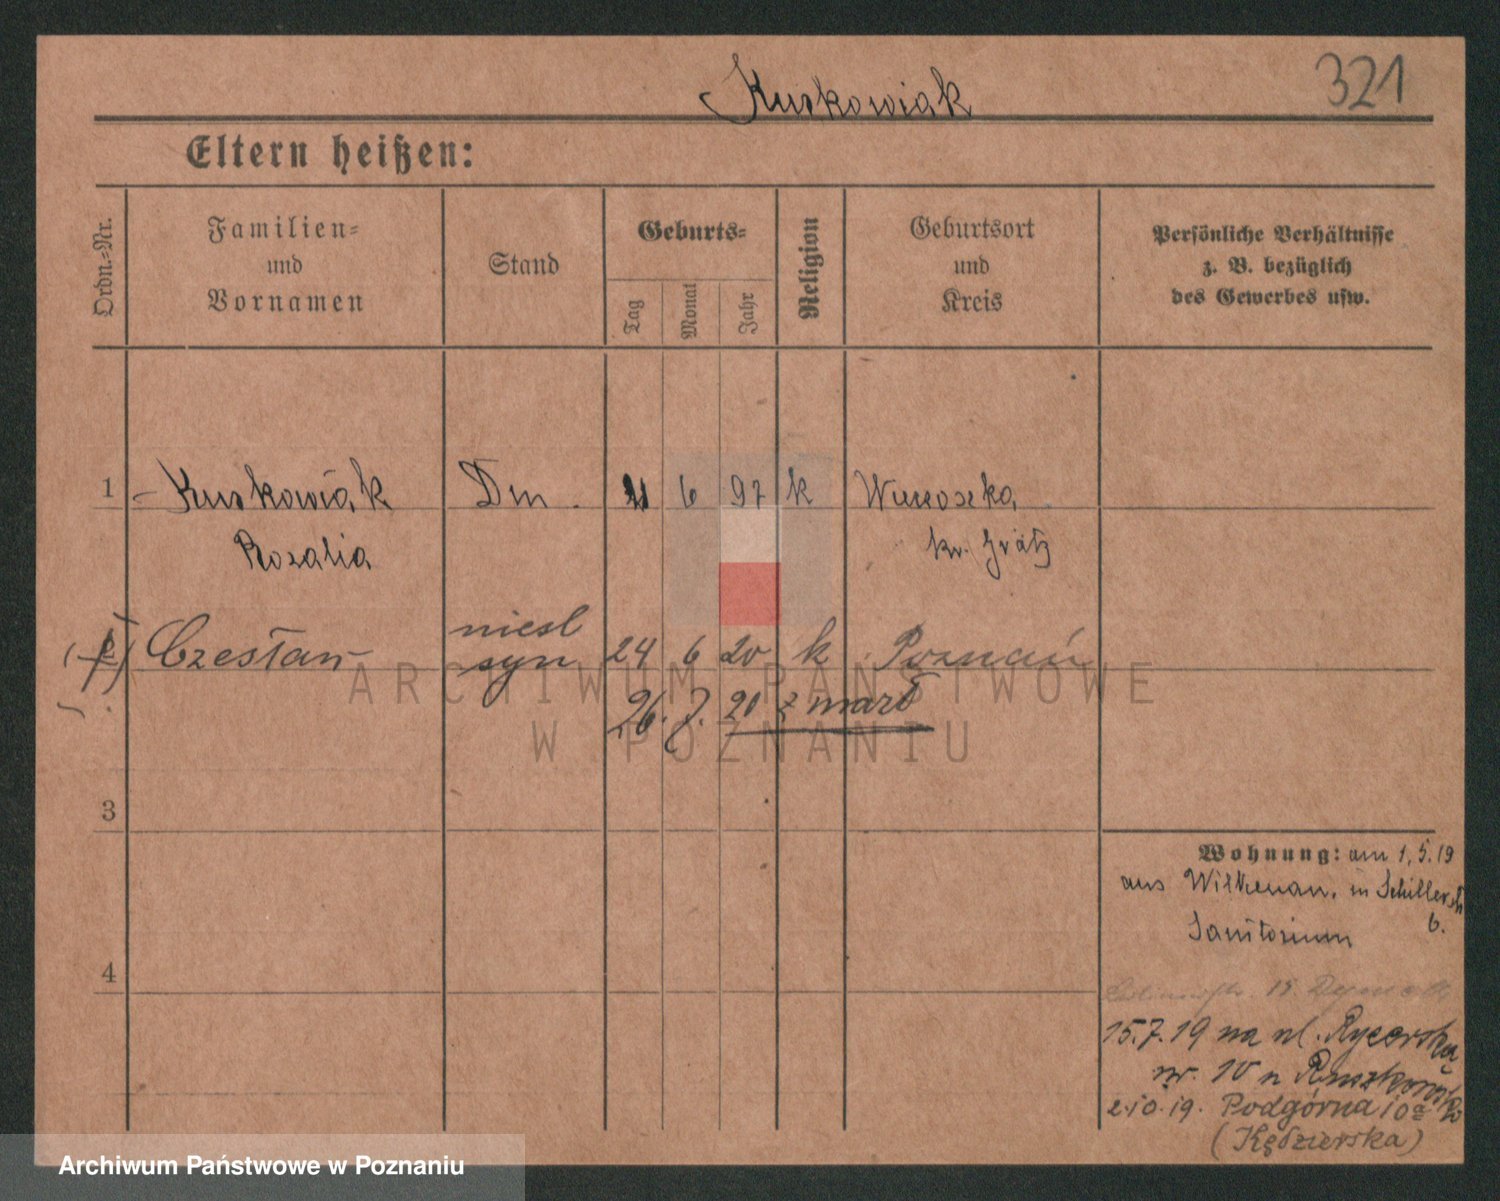 Kurkowiak 321
Eltern heißen:
Ordn.-Nr.
Familien-
und
Vornamen
Stand
Geburts-
Tag
Monat
Jahr
Religion
Geburtsort
und
Kreis
Persönliche Verhältnisse
z. B. bezüglich
des Gewerbes usw.
1 Kurkowiak Dm. 6 97 k
Rozalia kr. Grätz
Czesław niesl
syn 24 6 20 k Poznań
26. 7. 20 zmarł
ARCHIWUM PAŃSTWOWE
W POZNANIU
3
4
Wohnung: am 1.5.19
aus Wilkenau, in Schillerstr
6.
Sanitorium
15.
15.7.19 na ul. Rycerska
nr. 10 u
2.10.19. Podgórna 10a
(Kędzierska)
Archiwum Państwowe w Poznaniu